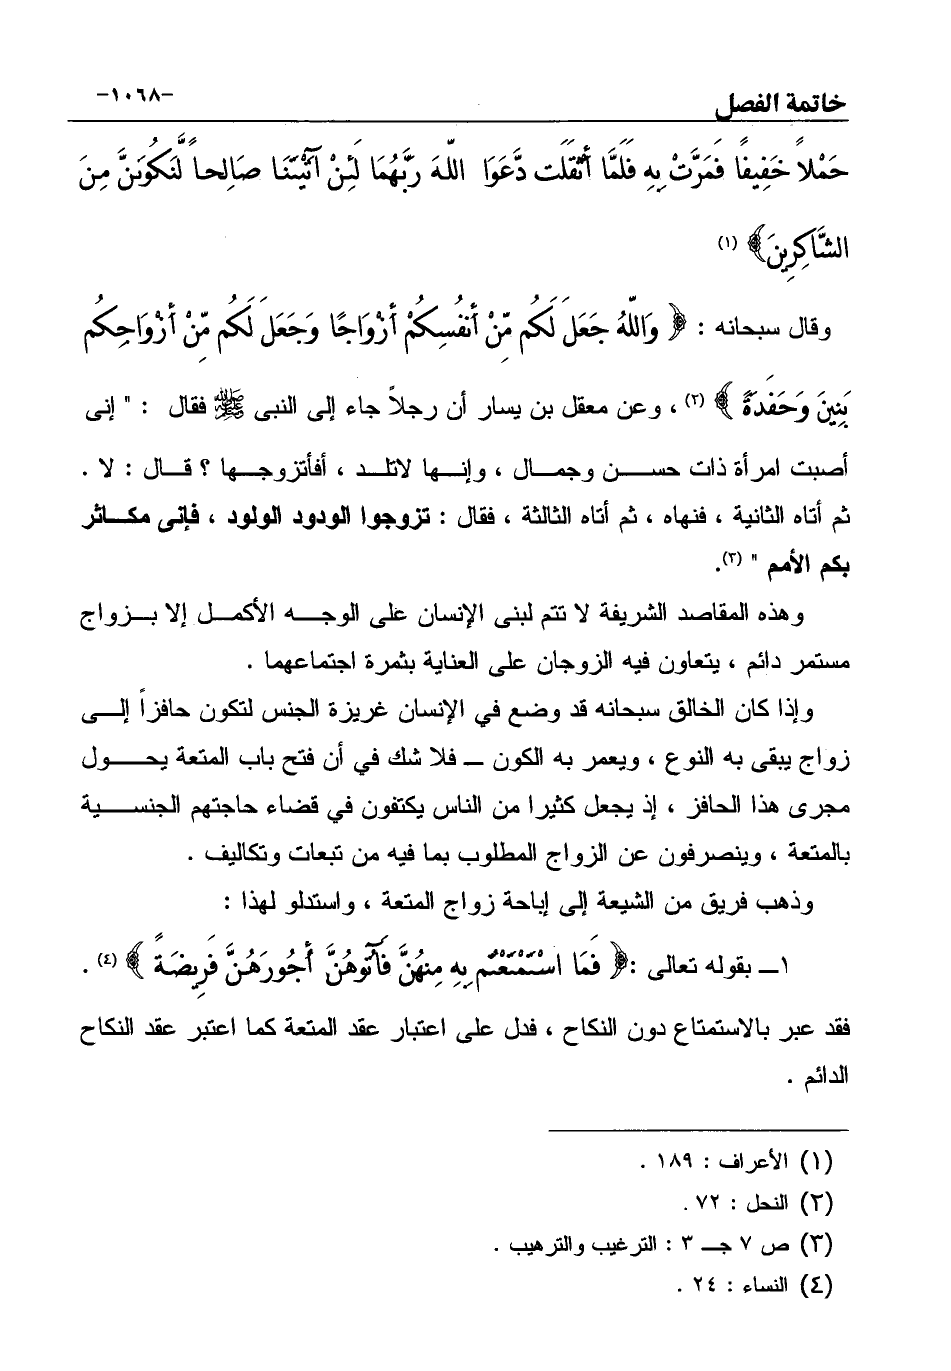 خاتمة الفصل
-١٠٦٨-
حَمْلاً خَفِيفًا فَمَرَّتْ بِهِ فَلَمَّا أَثْقَلَت دَّعَوَا اللّهَ رَبَّهُمَا لَئِنْ آتَيْتَنَا صَالِحاً لَّنَكُونَنَّ مِنَ
الشَّاكِرِينَ﴾ (١)
وقال سبحانه : ﴿ وَاللّهُ جَعَلَ لَكُم مِّنْ أَنفُسِكُمْ أَزْوَاجًا وَجَعَلَ لَكُم مِّنْ أَزْوَاجِكُم
بَنِينَ وَحَفَدَةً ﴾ (٢) ، وعن معقل بن يسار أن رجلاً جاء إلى النبى ﷺ فقال : " إنى
أصبت امرأة ذات حســـن وجمـــال ، وإنـــها لاتلـــد ، أفأتزوجـــها ؟ قـــال : لا .
ثم أتاه الثانية ، فنهاه ، ثم أتاه الثالثة ، فقال : تزوجوا الودود الولود ، فإنى مكـــاثر
بكم الأمم " (٣).
وهذه المقاصد الشريفة لا تتم لبنى الإنسان على الوجـــه الأكمـــل إلا بـــزواج
مستمر دائم ، يتعاون فيه الزوجان على العناية بثمرة اجتماعهما .
وإذا كان الخالق سبحانه قد وضع في الإنسان غريزة الجنس لتكون حافزاً إلـــى
زواج يبقى به النوع ، ويعمر به الكون ــ فلا شك في أن فتح باب المتعة يحـــول
مجرى هذا الحافز ، إذ يجعل كثيرا من الناس يكتفون في قضاء حاجتهم الجنســـية
بالمتعة ، وينصرفون عن الزواج المطلوب بما فيه من تبعات وتكاليف .
وذهب فريق من الشيعة إلى إباحة زواج المتعة ، واستدلو لهذا :
١ــ بقوله تعالى :﴿ فَمَا اسْتَمْتَعْتُم بِهِ مِنْهُنَّ فَآتُوهُنَّ أُجُورَهُنَّ فَرِيضَةً ﴾ (٤) .
فقد عبر بالاستمتاع دون النكاح ، فدل على اعتبار عقد المتعة كما اعتبر عقد النكاح
الدائم .
(١) الأعراف : ١٨٩ .
(٢) النحل : ٧٢ .
(٣) ص ٧ جــ ٣ : الترغيب والترهيب .
(٤) النساء : ٢٤ .